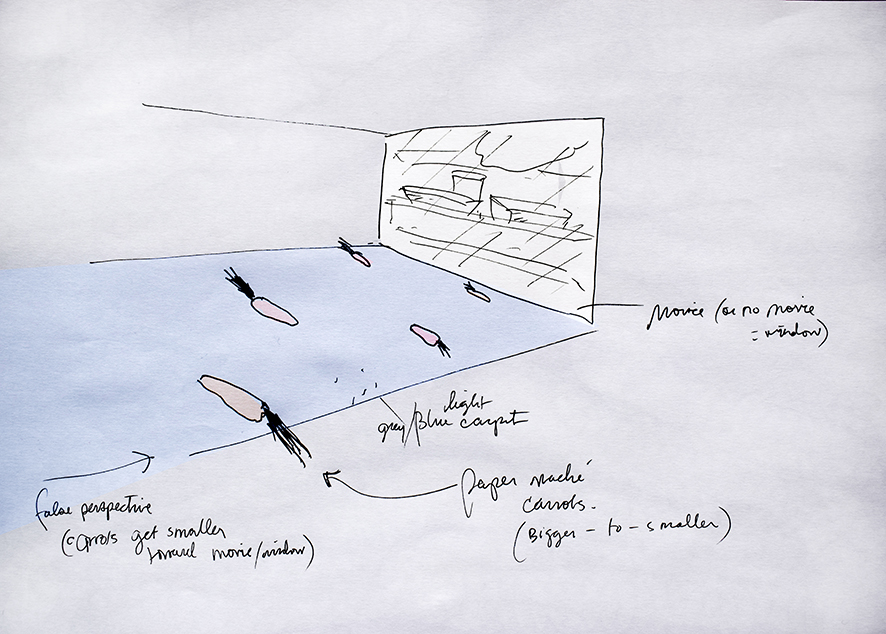 Movie (or no movie
= window)
light
grey/Blue carpet
paper maché
carrots.
(Bigger - to - smaller)
false perspective
(carrots get smaller
toward movie/window)